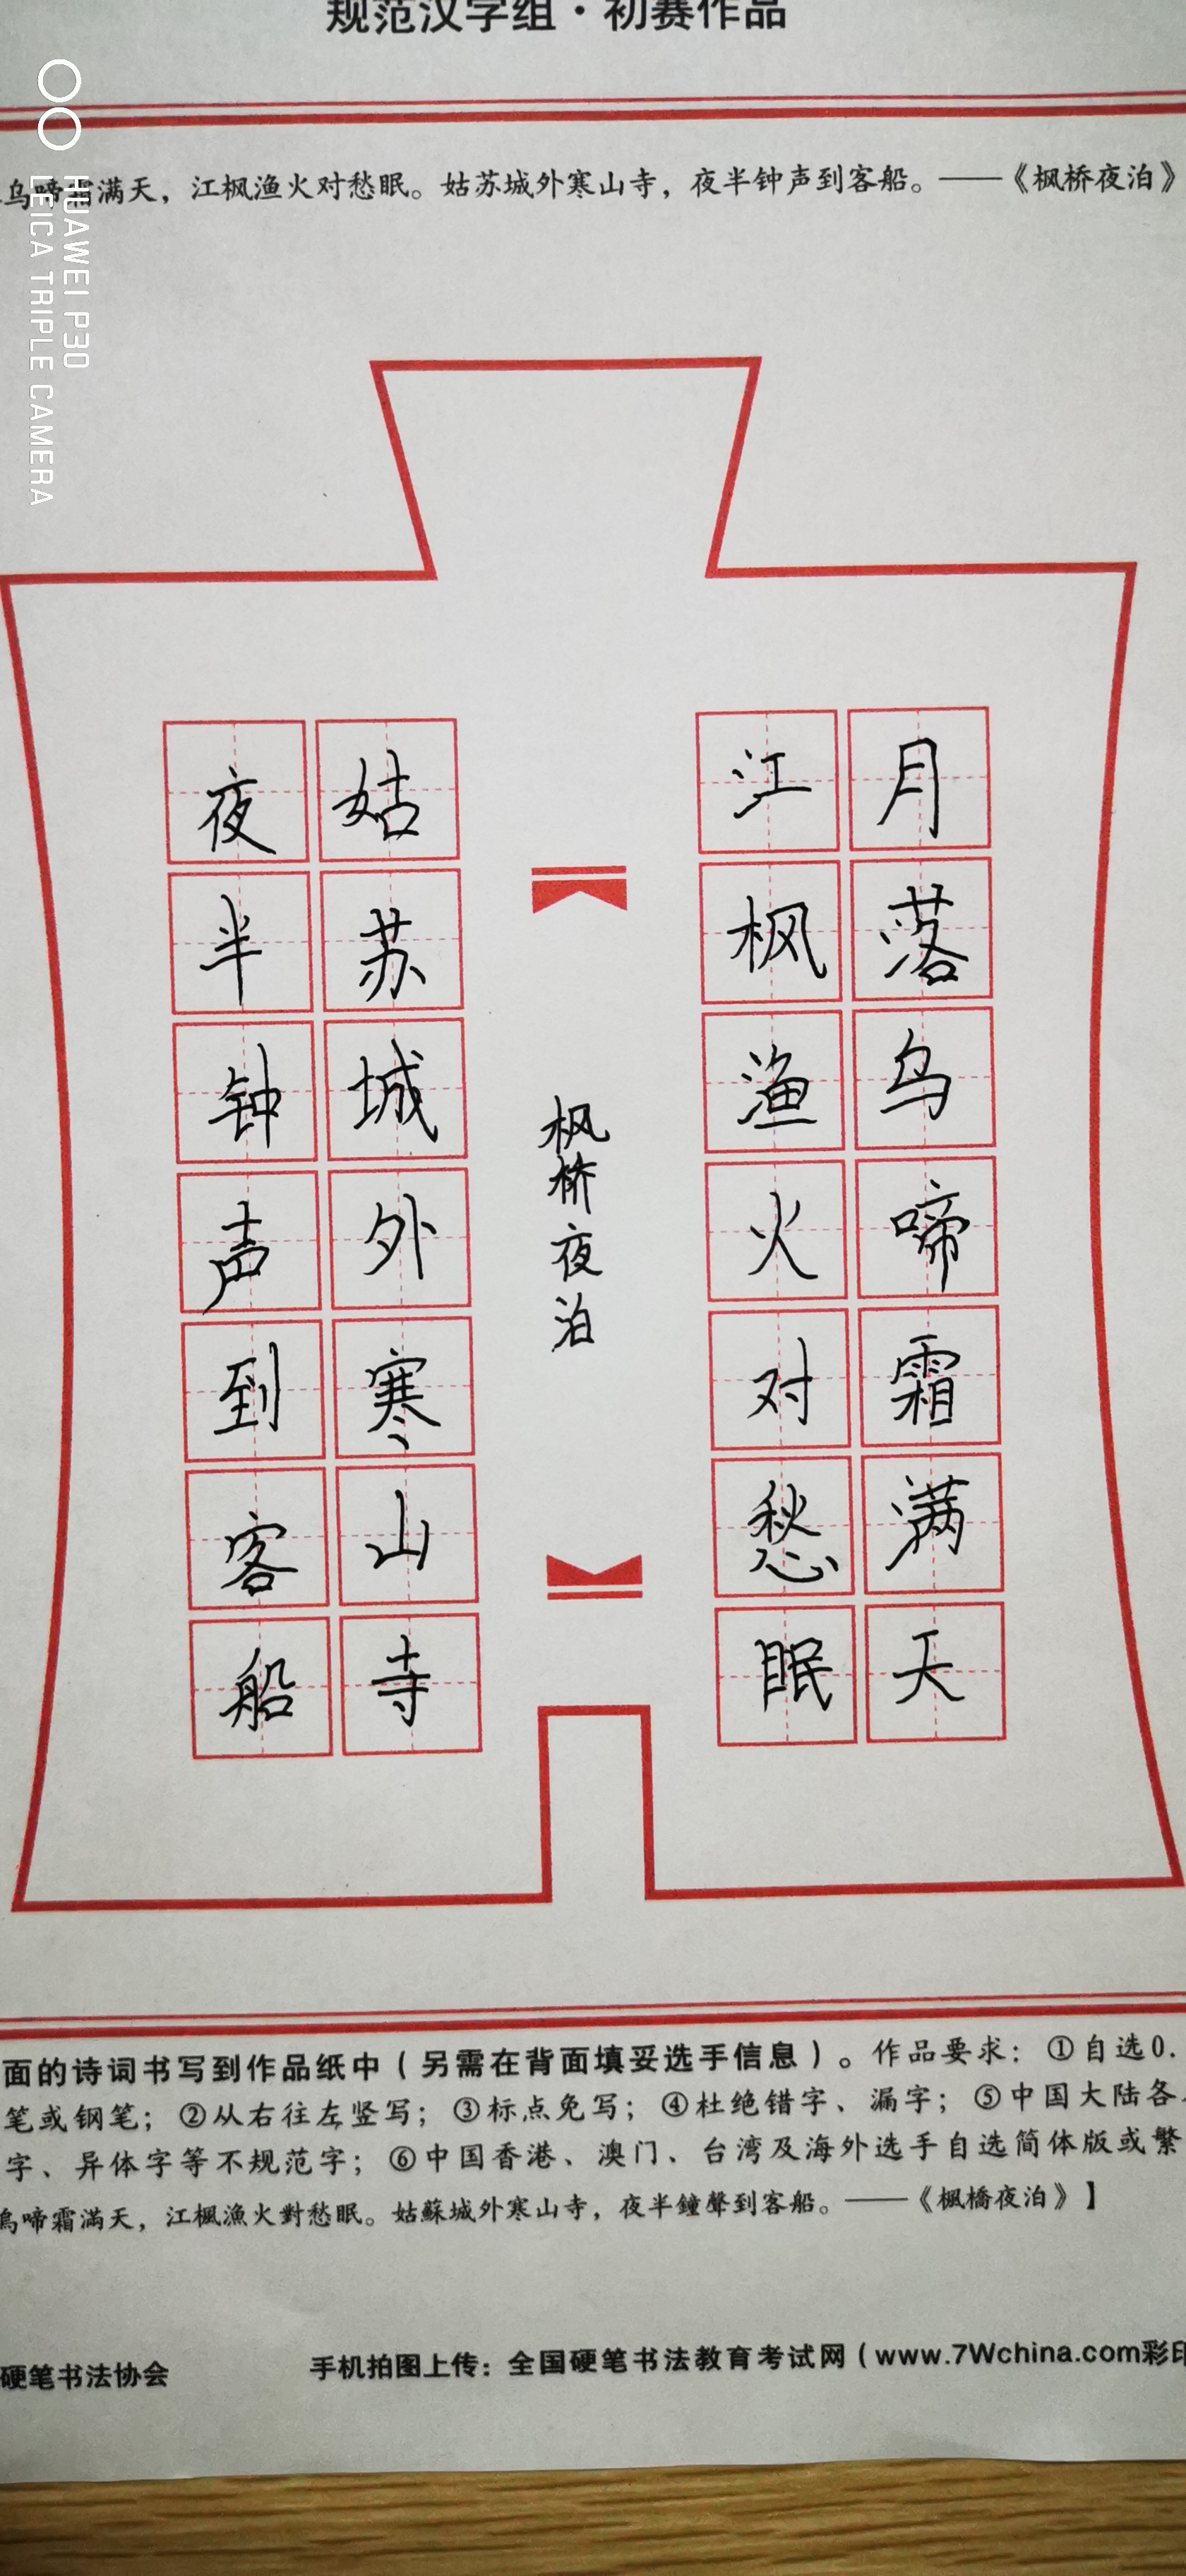 规范汉字组·初赛作品
乌啼霜满天，江枫渔火对愁眠。姑苏城外寒山寺，夜半钟声到客船。——《枫桥夜泊》
HUAWEI P30
LEICA TRIPLE CAMERA
月落乌啼霜满天
江枫渔火对愁眠
枫桥夜泊
姑苏城外寒山寺
夜半钟声到客船
面的诗词书写到作品纸中（另需在背面填妥选手信息）。作品要求：①自选0.
笔或钢笔；②从右往左竖写；③标点免写；④杜绝错字、漏字；⑤中国大陆各
字、异体字等不规范字；⑥中国香港、澳门、台湾及海外选手自选简体版或繁
烏啼霜滿天，江楓漁火對愁眠。姑蘇城外寒山寺，夜半鐘聲到客船。——《楓橋夜泊》】
硬笔书法协会
手机拍图上传：全国硬笔书法教育考试网（www.7Wchina.com彩印